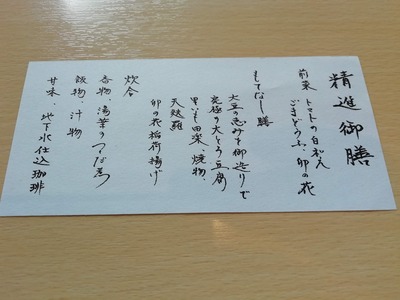 精進御膳
前菜 トマトの白和え
ごまどうふ、卯の花
もてなし膳
大豆の恵みを御造りで
究極の大とろ豆腐
田楽 焼物、
天麩羅
卯の花稲荷揚げ
炊合
香物、湯葉のつくだ煮
飯物、汁物
甘味、地下水仕込珈琲